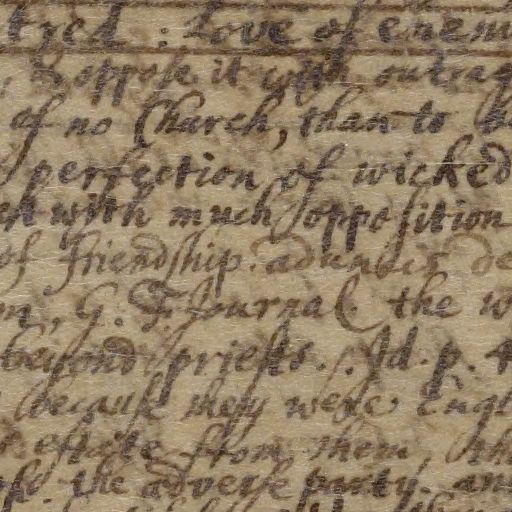 tred : Love of enem
, & oppose it with outrag
of no Church, than to
perfection of wicked
with much opposition
of friendship. de
G. F. Journal. the w
beyond priests. Id. p. 4
because they were Engl
Estate from them, th
the adverse party. an